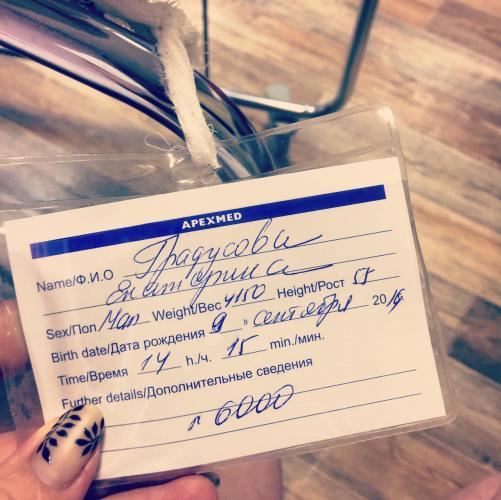 APEXMED
Name/Ф.И.О Прадусова
Екатерина
Sex/Пол Мал Weight/Вес 4150 Height/Рост 55
Birth date/Дата рождения 9 " сентября 2016
Time/Время 14 h./ч. 15 min./мин.
Further details/Дополнительные сведения
л 6000